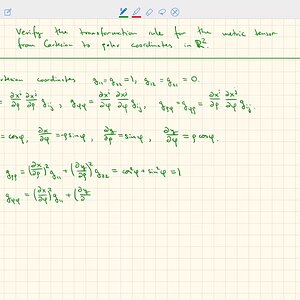 Verify the transformation rule for the metric tensor
from Cartesian to polar coordinates in ℝ².
artesian coordinates g₁₁ = g₂₂ = 1, g₁₂ = g₂₁ = 0.
= ∂xⁱ/∂ρ ∂xʲ/∂ρ gᵢⱼ, g_φφ = ∂xⁱ/∂φ ∂xʲ/∂φ gᵢⱼ, g_ρφ = g_φρ = ∂xⁱ/∂ρ ∂xʲ/∂φ gᵢⱼ.
= cosφ, ∂x/∂φ = -ρ sinφ, ∂y/∂ρ = sinφ, ∂y/∂φ = ρ cosφ.
g_ρρ = (∂x/∂ρ)² g₁₁ + (∂y/∂ρ)² g₂₂ = cos²φ + sin²φ = 1
g_φφ = (∂x/∂φ)² g₁₁ + (∂y/∂